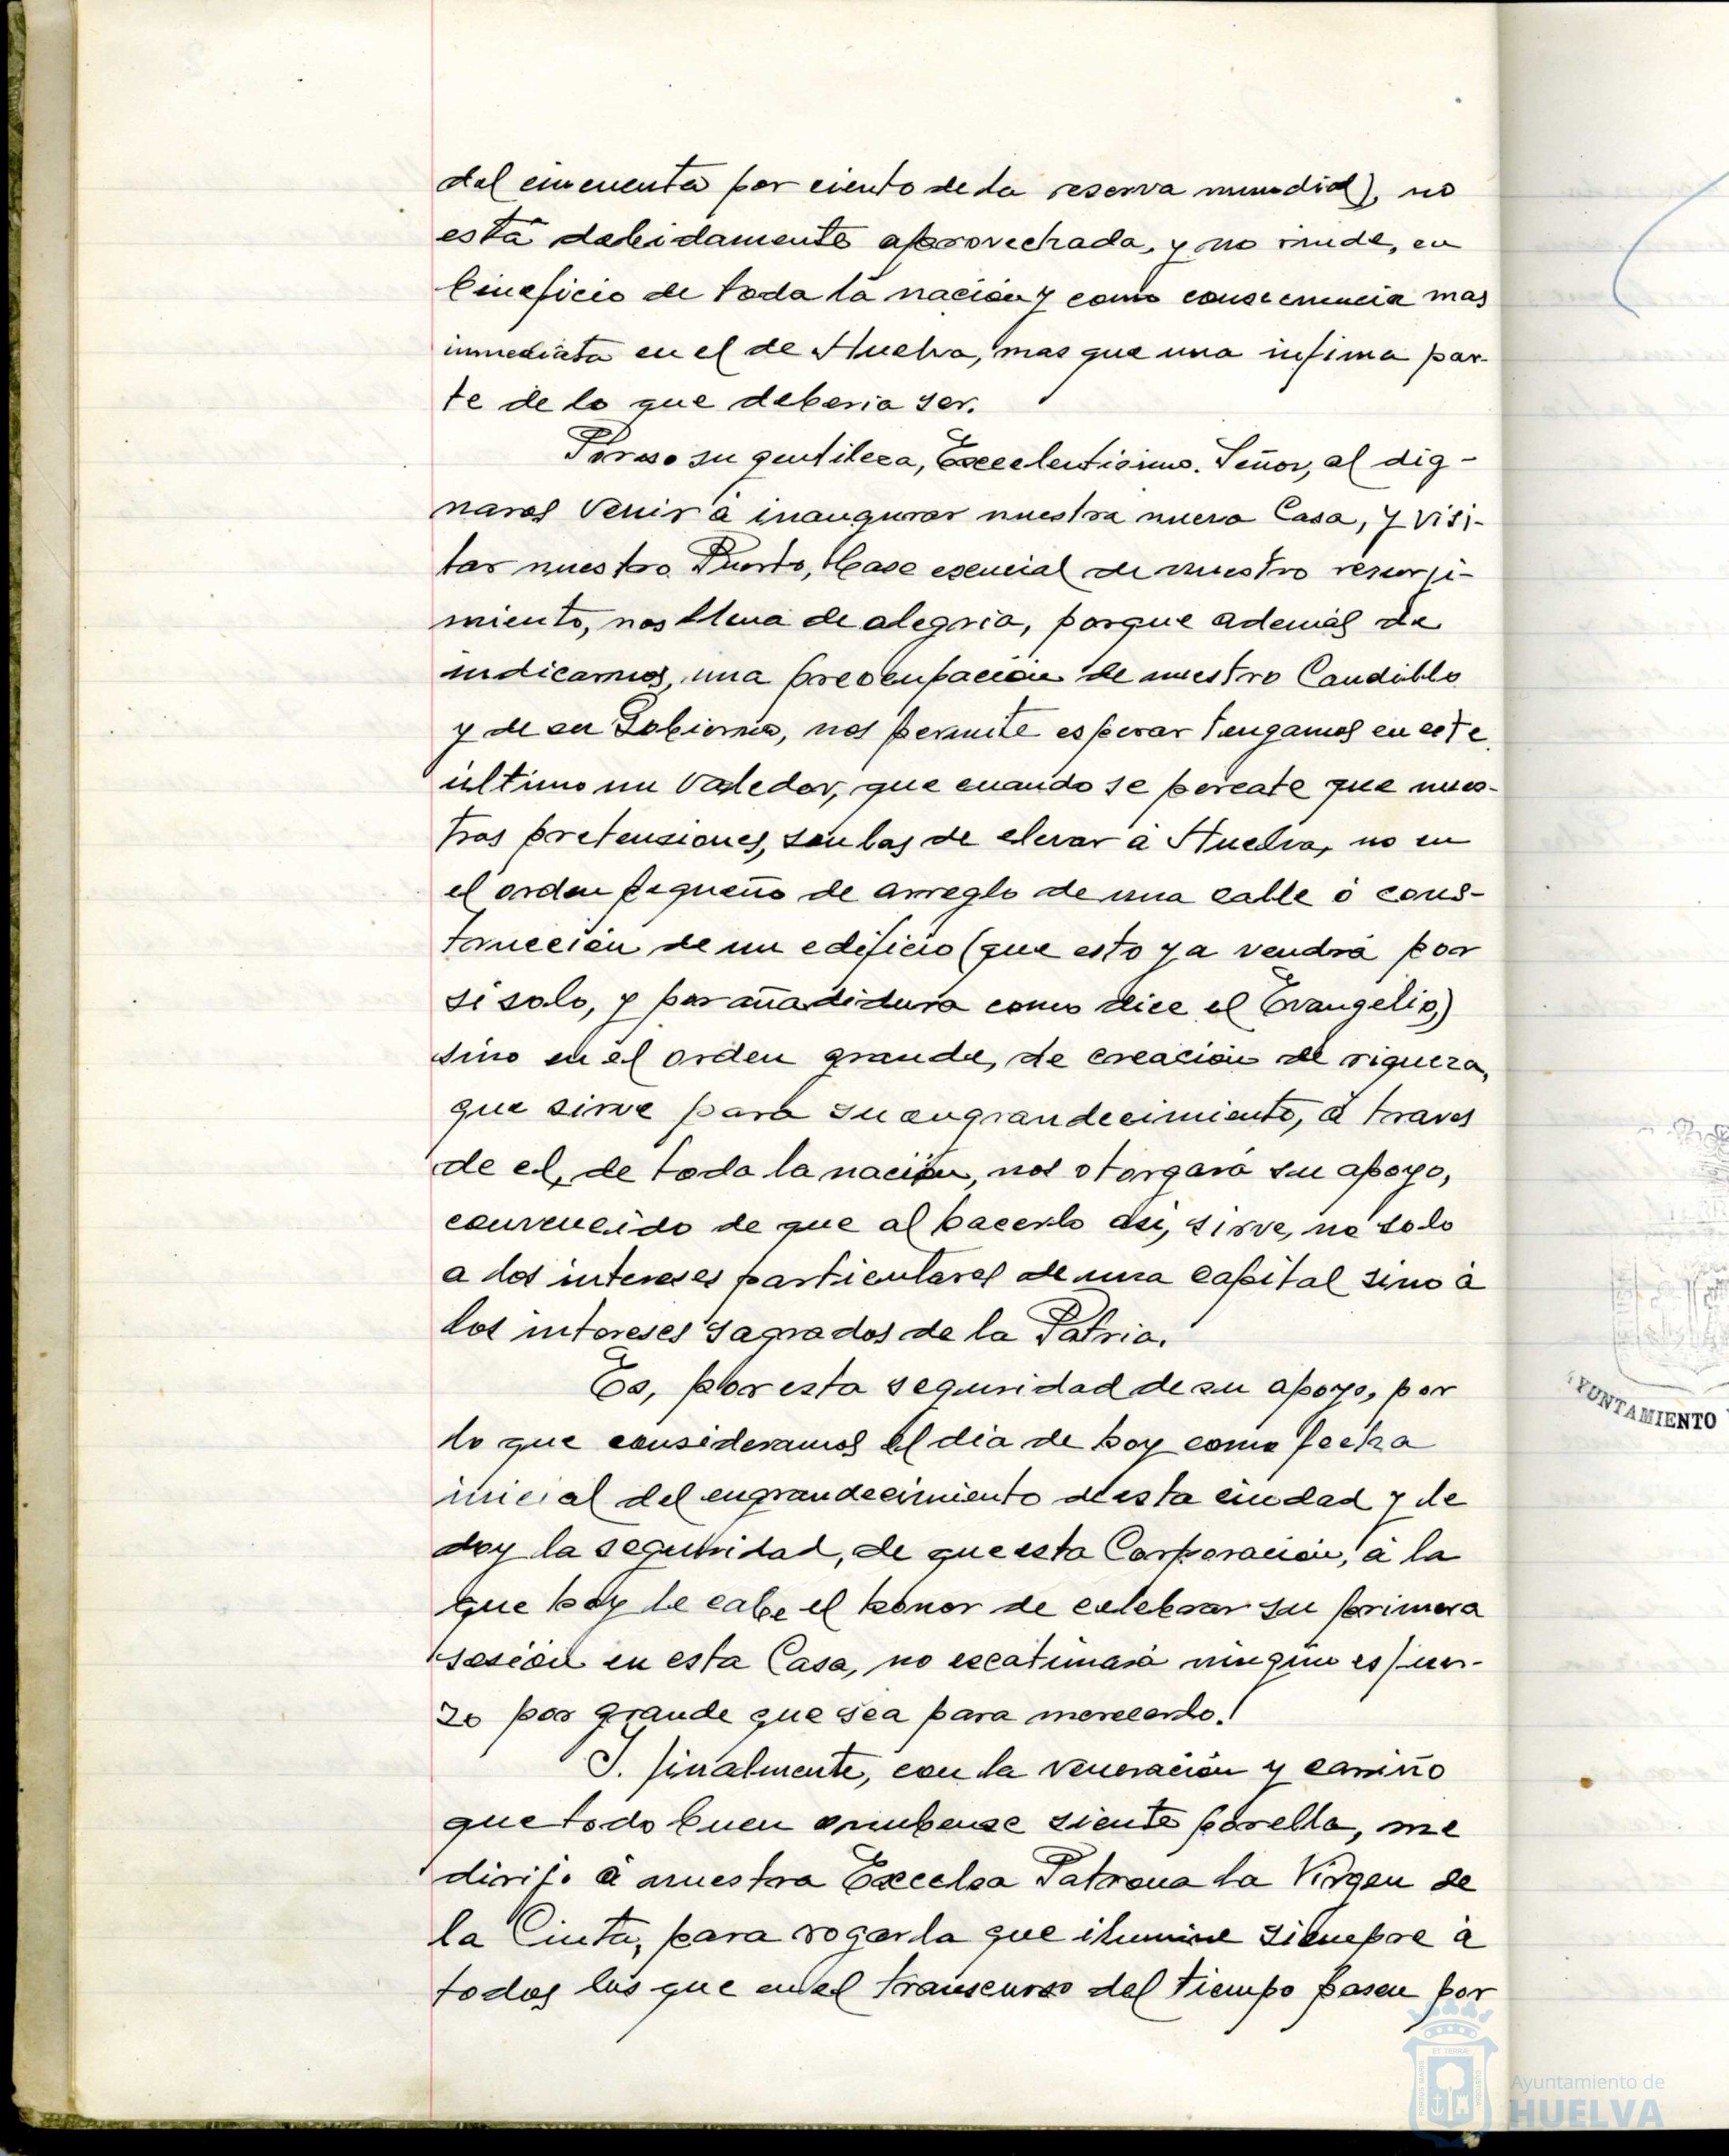 del cincuenta por ciento de la reserva mundial), no
está debidamente aprovechada, y no rinde, en
beneficio de toda la nación y como consecuencia mas
inmediata en el de Huelva, mas que una infima par-
te de lo que deberia ser.
Por eso su gentileza, Excelentisimo. Señor, al dig-
naros venir á inaugurar nuestra nueva Casa, y visi-
tar nuestro Puerto, base esencial de nuestro resurji-
miento, nos llena de alegria, porque además de
indicarnos, una preocupación de nuestro Caudillo
y de su Gobierno, nos permite esperar tengamos en este
último un valedor, que cuando se percate que nues-
tras pretensiones, son las de elevar á Huelva, no en
el orden pequeño de arreglo de una calle ó cons-
trucción de un edificio (que esto ya vendrá por
si solo, y por añadidura como dice el Evangelio,)
sino en el orden grande, de creación de riqueza,
que sirve para su engrandecimiento, á traves
de el, de toda la nación, nos otorgará su apoyo,
convencido de que al hacerlo asi, sirve, no solo
a los intereses particulares de una capital sino á
los intereses sagrados de la Patria.
Es, por esta seguridad de su apoyo, por
lo que consideramos el dia de hoy como fecha
inicial del engrandecimiento de esta ciudad y le
doy la seguridad, de que esta Corporación, á la
que hoy le cabe el honor de celebrar su primera
sesión en esta Casa, no escatimará ningún esfuer-
zo por grande que sea para merecerlo.!
Y. finalmente, con la veneración y cariño
que todo buen onubense siente por ella, me
dirijo á nuestra Excelsa Patrona la Virgen de
la Cinta, para rogarla que ilumine siempre á
todos los que en el transcurso del tiempo pasen por
AYUNTAMIENTO
Ayuntamiento de
HUELVA